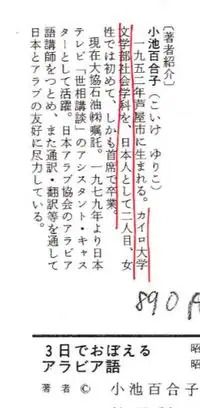 〔著者紹介〕
小池百合子（こいけ ゆりこ）
一九五二年芦屋市に生まれる。カイロ大学
文学部社会学科を、日本人として二人目、女
性では初めて、しかも首席で卒業。
現在大協石油㈱嘱託。一九七九年より日本
テレビ「世相講談」のアシスタント・キャス
ターとして活躍。日本アラブ協会のアラビア
語講師をつとめ、また通訳・翻訳等を通して
日本とアラブの友好に尽力している。
890
3日でおぼえる
アラビア語
著者 © 小池百合子
昭
昭